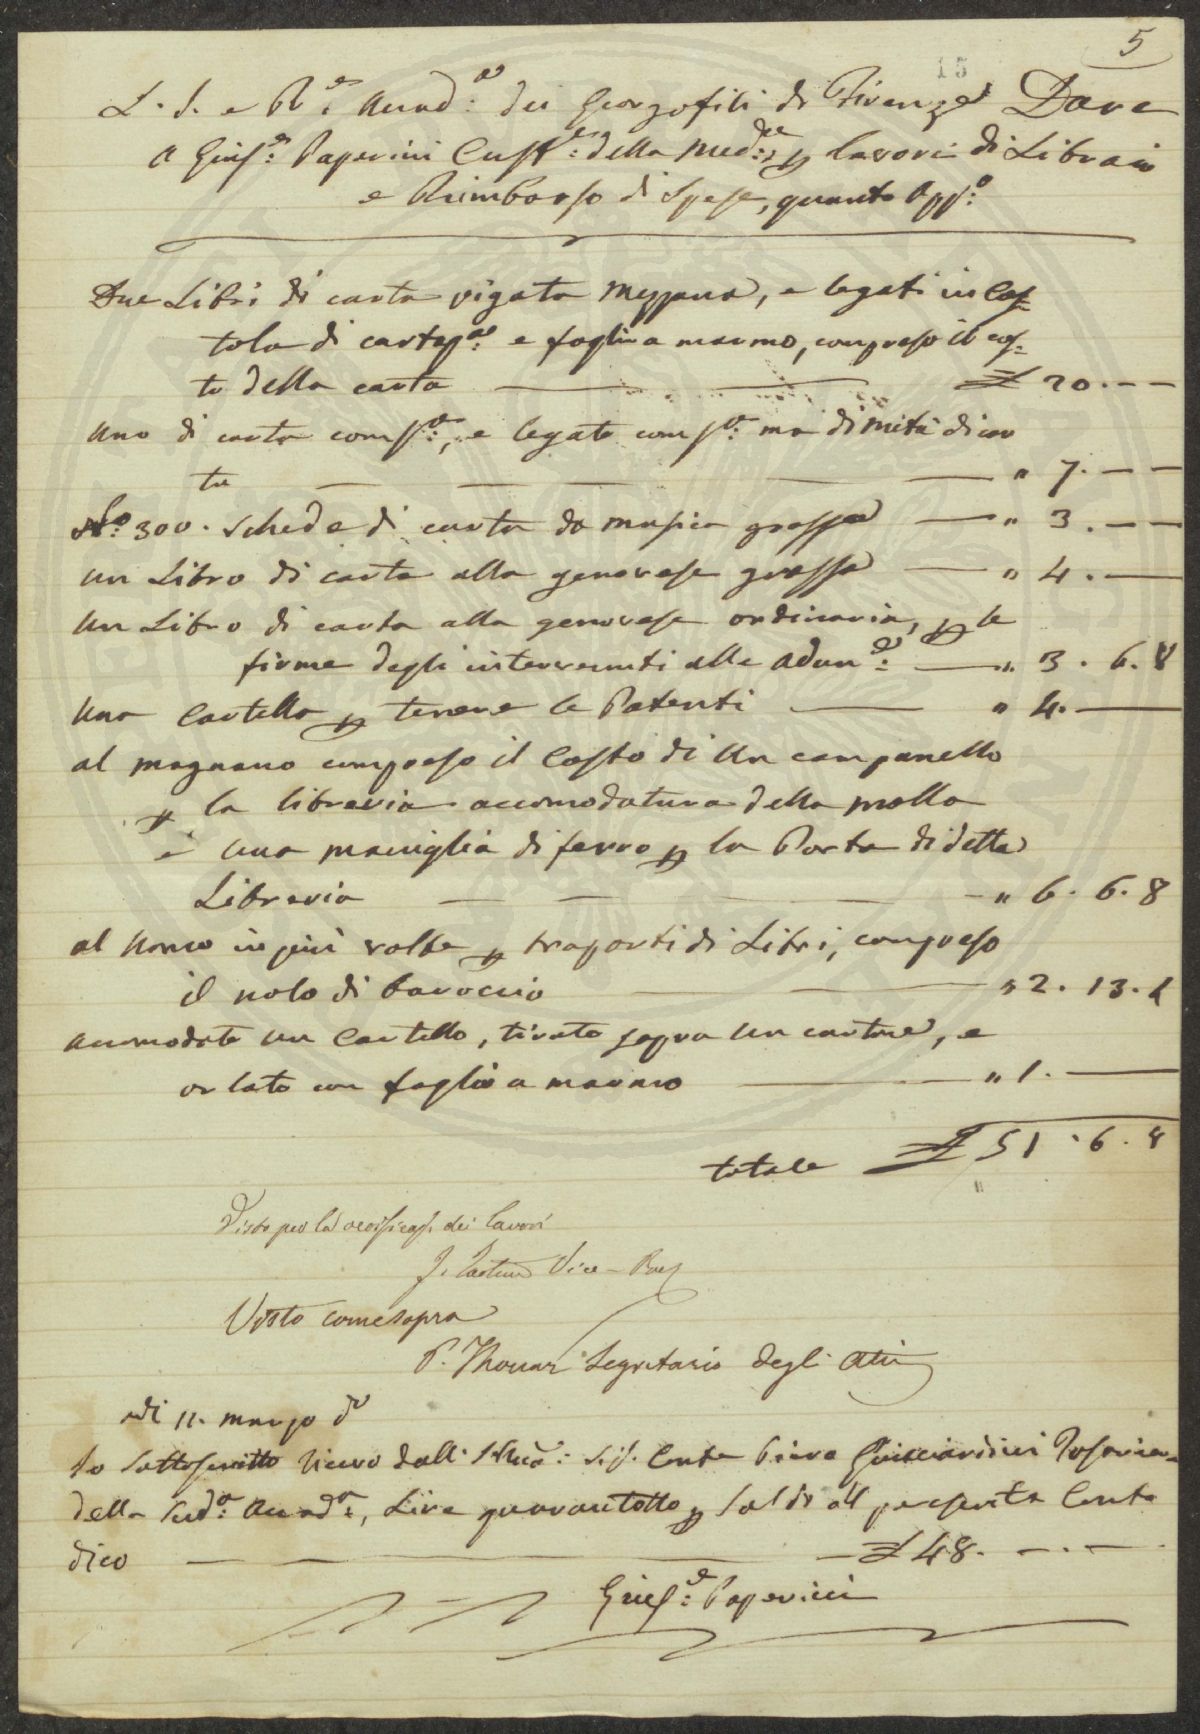 5
15
L. I. e R.e Accad.a dei Georgofili di Firenze Dare
a Gius.e Paperini Cust.e della Med.e, p lavori di Libraio
e Rimborso di Spese, quanto App.o
Due Libri di carta rigata mezzana, e legati in Cos=
tola di cartap.a e foglio a marmo, compreso il cos=
to della carta £ 20. — —
Uno di carta com S.a, e legato com S.a ma di metà di car
ta " 7. — —
N.o 300. Schede di carta da musica grossa " 3. — —
un Libro di carta alla genovese grossa " 4. —
Un Libro di carta alla genovese ordinaria, p le
firme degli intervenuti alle Adun.e " 3. 6. 8
Una Cartella p tenere le Patenti " 4. —
al magnano compreso il Costo di Un campanello
p la libreria accomodatura della molla
e una maniglia di ferro p la Porta di detta
Libreria " 6. 6. 8
al Uomo in più volte p trasporti di Libri, compreso
il nolo di baroccio " 2. 13. 4
accomodato un Cartello, tirato sopra Un cartone, e
orlato con foglio a marmo " 1. —
totale £ 51. 6. 8
Visto per la verificaz. dei lavori
Vice-Pres
Visto come sopra
P. Thouar Segretario degli Atti
adi 11. marzo d.o
Io Sottoscritto ricevo dall' Sig. Conte Piero Guicciardini
della Sud.a Accad.a, Lire quarantotto p Saldo del presente Conto
dico £ 48. — . —
Gius.e Paperini